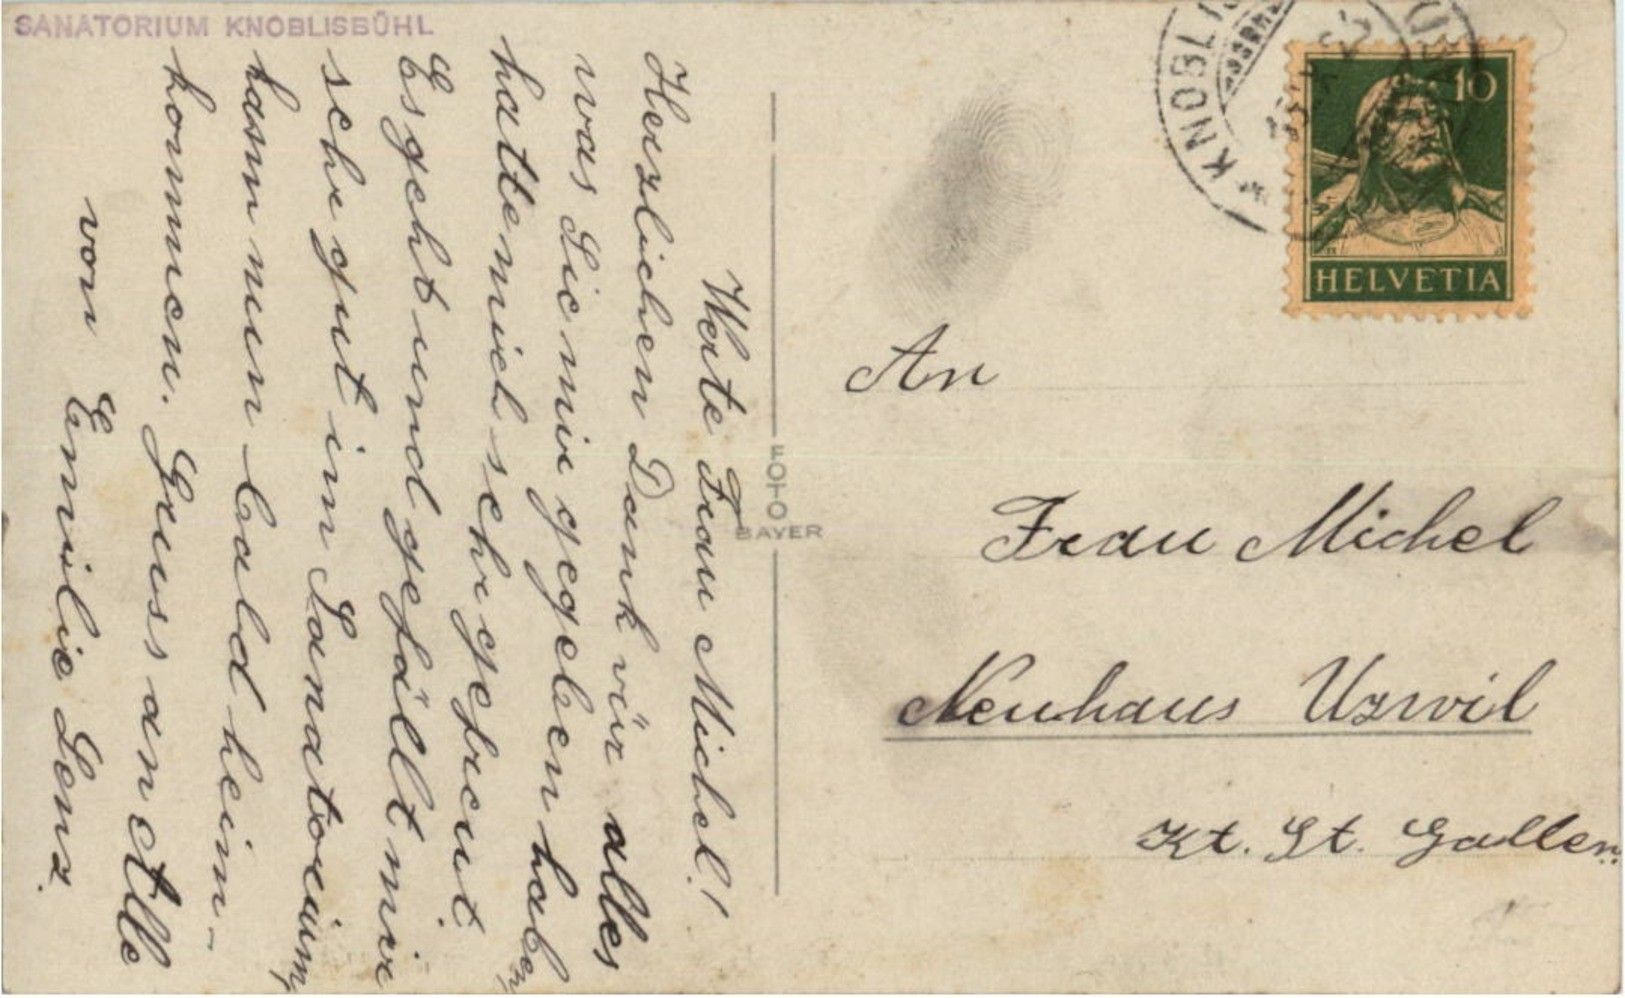 SANATORIUM KNOBLISBÜHL
Werte Frau Michel!
Herzlichen Dank vür alles
was Sie mir gegeben haben
hatte mich sehr gefreut.
Es geht und gefällt mir
sehr gut im Sanatorium
kann nun bald heim-
kommen. Gruss an Alle
von Emilie Lenz.
FOTO
BAYER
* KNOBLIS
10
HELVETIA
An
Frau Michel
Neuhaus Uzwil
Kt. St. Gallen.